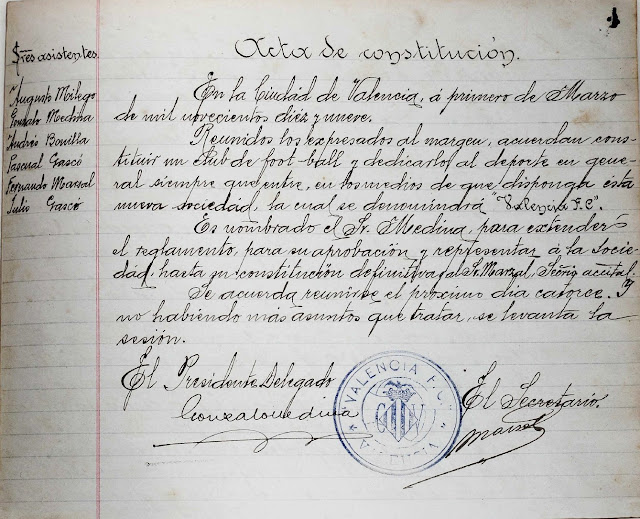 1
Sres asistentes.
Augusto Milego
Gonzalo Medina
Andrés Bonilla
Pascual Gascó
Fernando Marzal
Julio Gascó
Acta de constitución.
En la Ciudad de Valencia, á primero de Marzo
de mil novecientos diez y nueve.
Reunidos los expresados al margen, acuerdan cons-
tituir un club de foot-ball y dedicarlos al deporte en gene-
ral siempre que entre, en los medios de que disponga ésta
nueva sociedad, la cual se denomindrá "Valencia F.C".
Es nombrado el Sr. Medina, para extender
el reglamento, para su aprobación y representar á la Socie-
dad, hasta su constitución definitiva, al Sr. Marzal, Scrio accital.
Se acuerda reunirse el próximo dia catorce. Y
no habiendo más asuntos que tratar, se levanta la
sesión.
El Presidente Delegado
Gonzalo Medina
VALENCIA F.C.
VALENCIA
El Secretario.
Marzal